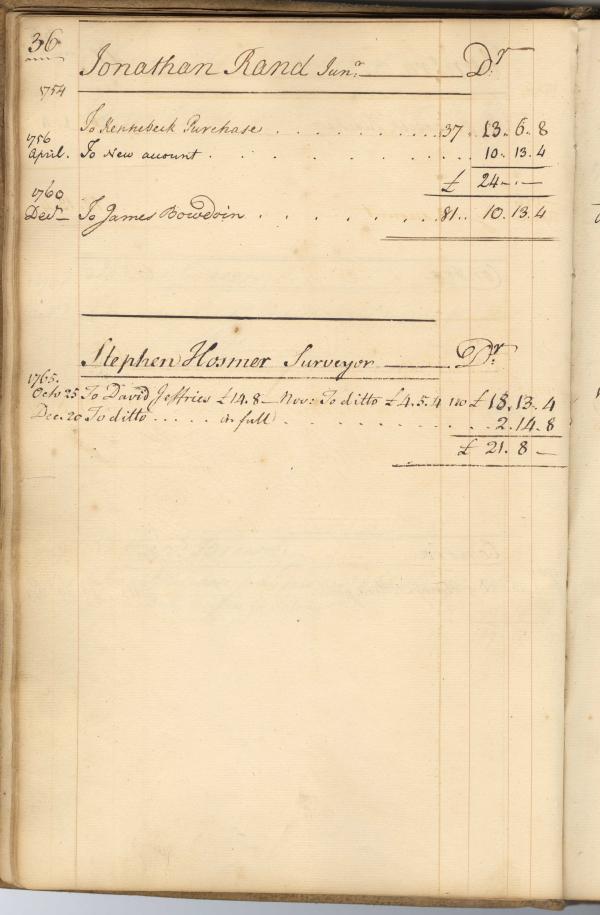 36
Jonathan Rand Junr. Dr
1754
To Kennebeck Purchase . . . . . . . . . 37 . 13. 6. 8
1756
April. To New account . . . . . . . . . 10. 13. 4
£ 24 - . -
1760
Decr. To James Bowdoin . . . . . . . . 81 . . 10. 13. 4
Stephen Hosmer Surveyor Dr
1765.
Octo 25 To David Jeffries £14. 8 - Nov: To ditto £4. 5. 4 110 £ 18. 13. 4
Dec. 20 To ditto . . . . . in full . . . . . . . . . 2. 14. 8
£ 21. 8 -